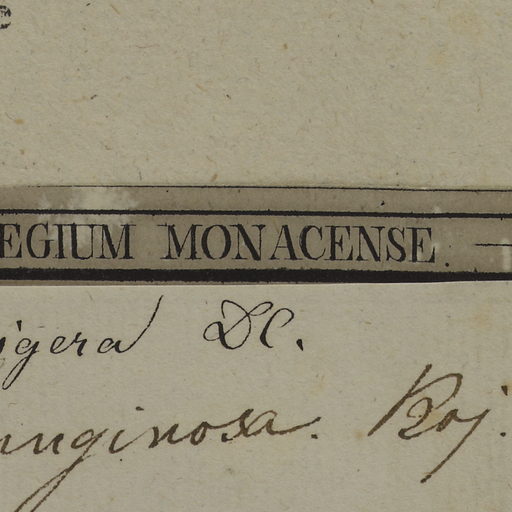 EGIUM MONACENSE.
igera DC.
unginosa. Boj.